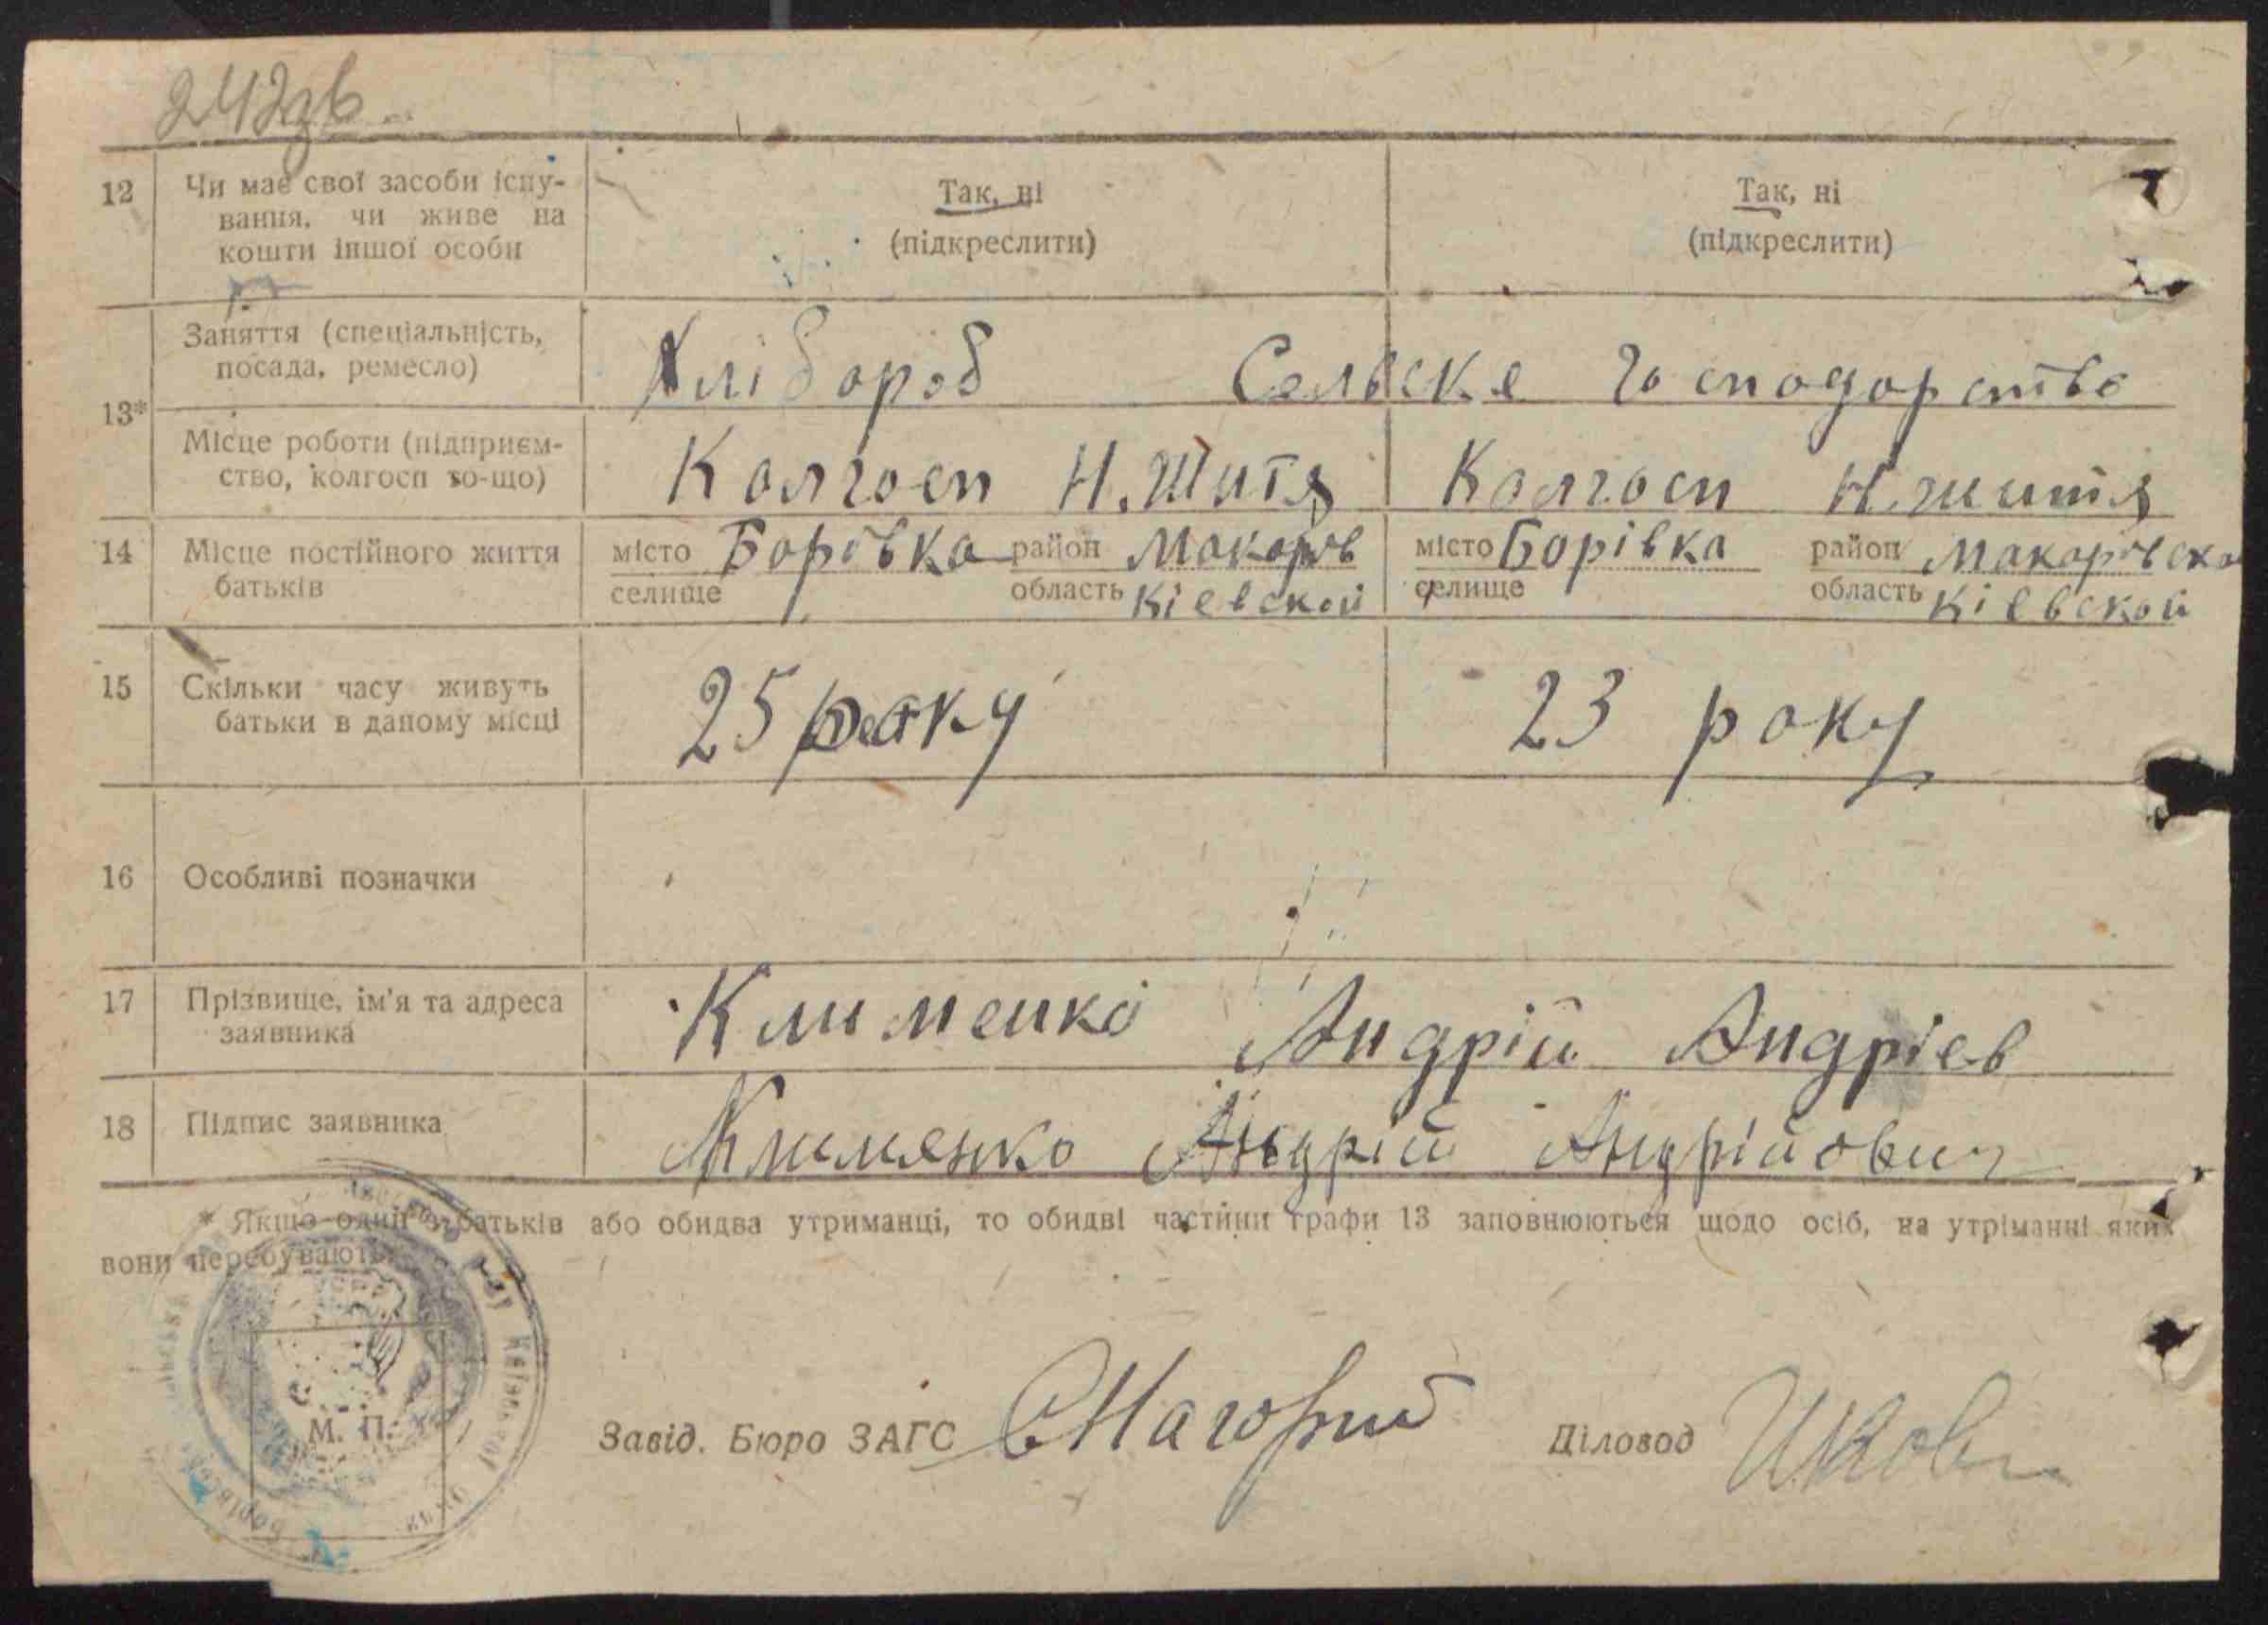 242зв
12 Чи має свої засоби існу-
вання, чи живе на
кошти іншої особи
Так, ні
(підкреслити)
Так, ні
(підкреслити)
13*
Заняття (спеціальність,
посада, ремесло)
Хлібороб Сельске господорство
Місце роботи (підприєм-
ство, колгосп то-що)
Колгосп Н. Життя Колгосп Н. життя
14 Місце постійного життя
батьків
місто Борівка район Макорів
селище область Кіевской
місто Борівка район Макорівска
селище область Кіевской
15 Скільки часу живуть
батьки в даному місці
25 року 23 року
16 Особливі позначки
17 Прізвище, ім'я та адреса
заявника
Клименко Андрій Андріев
18 Підпис заявника
Клименко Андрій Андрійович
* Якщо один з батьків або обидва утриманці, то обидві частини графи 13 заповнюються щодо осіб, на утріманні яких
вони перебувають.
М. П.
Завід. Бюро ЗАГС
Діловод